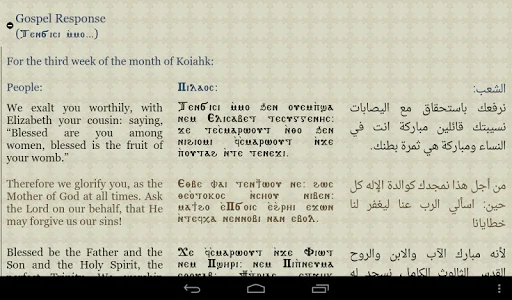 Gospel Response
(Ⲧⲉⲛϭⲓⲥⲓ ⲙ̀ⲙⲟ...)
For the third week of the month of Koiahk:
People:
We exalt you worthily, with
Elizabeth your cousin: saying,
“Blessed are you among
women, blessed is the fruit of
your womb.”
Ⲡⲓⲗⲁⲟⲥ:
Ⲧⲉⲛϭⲓⲥⲓ ⲙ̀ⲙⲟ ϧⲉⲛ ⲟⲩⲉⲙⲡϣⲁ
ⲛⲉⲙ Ⲉⲗⲓⲥⲁⲃⲉⲧ ⲧⲉⲥⲩⲅⲅⲉⲛⲏⲥ:
ϫⲉ ⲧⲉⲥⲙⲁⲣⲱⲟⲩⲧ ⲛ̀ⲑⲟ ϧⲉⲛ
ⲛⲓϩⲓⲟⲙⲓ ϥ̀ⲥⲙⲁⲣⲱⲟⲩⲧ ⲛ̀ϫⲉ
ⲡⲟⲩⲧⲁϩ ⲛ̀ⲧⲉ ⲧⲉⲛⲉϫⲓ.
الشعب:
نرفعك باستحقاق مع اليصابات
نسيبتك قائلين مباركة انت في
النساء ومباركة هي ثمرة بطنك.
Therefore we glorify you, as the
Mother of God at all times. Ask
the Lord on our behalf, that He
may forgive us our sins!
Ⲉⲑⲃⲉ ⲫⲁⲓ ⲧⲉⲛϯⲱⲟⲩ ⲛⲉ: ϩⲱⲥ
ⲑⲉⲟⲧⲟⲕⲟⲥ ⲛ̀ⲥⲏⲟⲩ ⲛⲓⲃⲉⲛ:
ⲙⲁϯϩⲟ ⲉ̀Ⲡϭⲟⲓⲥ ⲉ̀ϩⲣⲏⲓ ⲉϫⲱⲛ
ⲛ̀ⲧⲉϥⲭⲁ ⲛⲉⲛⲛⲟⲃⲓ ⲛⲁⲛ ⲉⲃⲟⲗ.
من أجل هذا نمجدك كوالدة الإله كل
حين: اسألي الرب عنا ليغفر لنا
خطايانا
Blessed be the Father and the
Son and the Holy Spirit, the
perfect Trinity. We worship
Ϫⲉ ϥ̀ⲥⲙⲁⲣⲱⲟⲩⲧ ⲛ̀ϫⲉ Ⲫⲓⲱⲧ
ⲛⲉⲙ Ⲡϣⲏⲣⲓ: ⲛⲉⲙ Ⲡⲓⲡⲛⲉⲩⲙⲁ
لأنه مبارك الآب والابن والروح
القدس الثالوث الكامل نسجد له